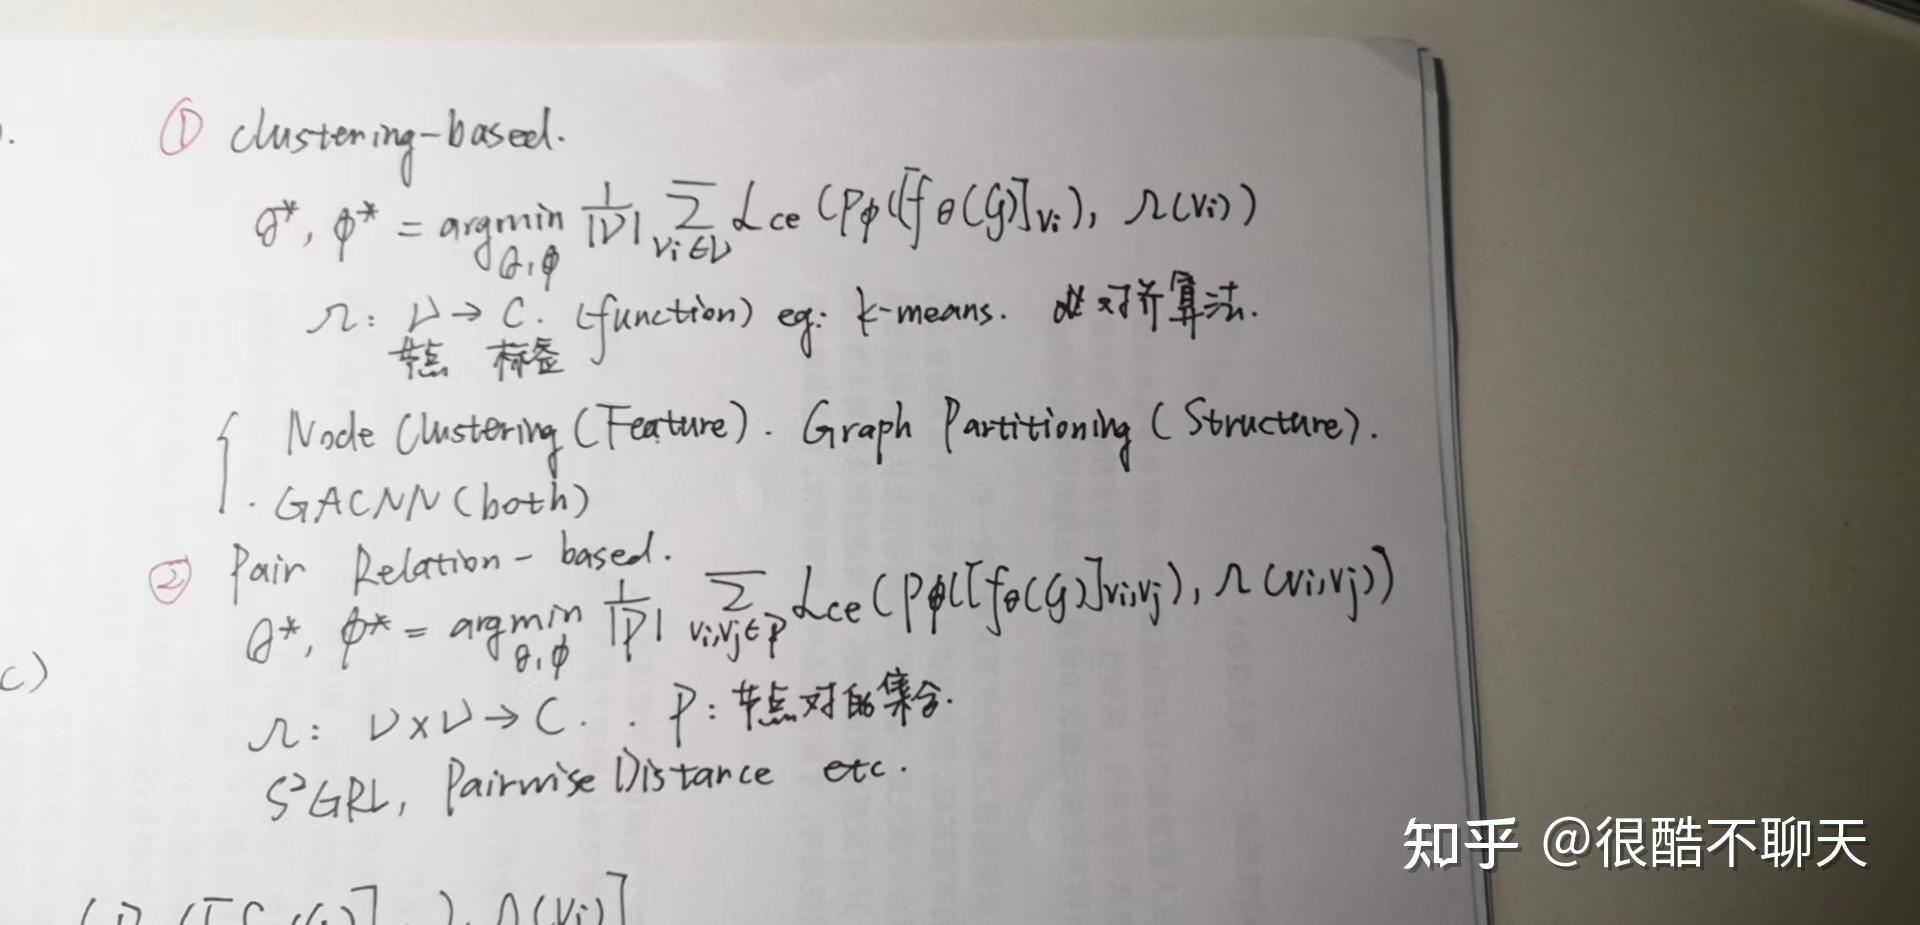 ① Clustering-based.
θ*, φ* = argmin θ,φ 1/|V| Σ vi∈V Lce (Pφ([fθ(G)]vi), Ω(vi))
Ω: V → C. (function) eg: k-means. 对齐算法.
节点 标签
Node Clustering (Feature). Graph Partitioning (Structure).
· GACNN (both)
② Pair Relation-based.
θ*, φ* = argmin θ,φ 1/|P| Σ vi,vj∈P Lce (Pφ([fθ(G)]vi,vj), Ω(vi,vj))
C)
Ω: V×V → C. . P: 节点对的集合.
S²GRL, Pairwise Distance etc.
Ω(vi)]
知乎 @很酷不聊天